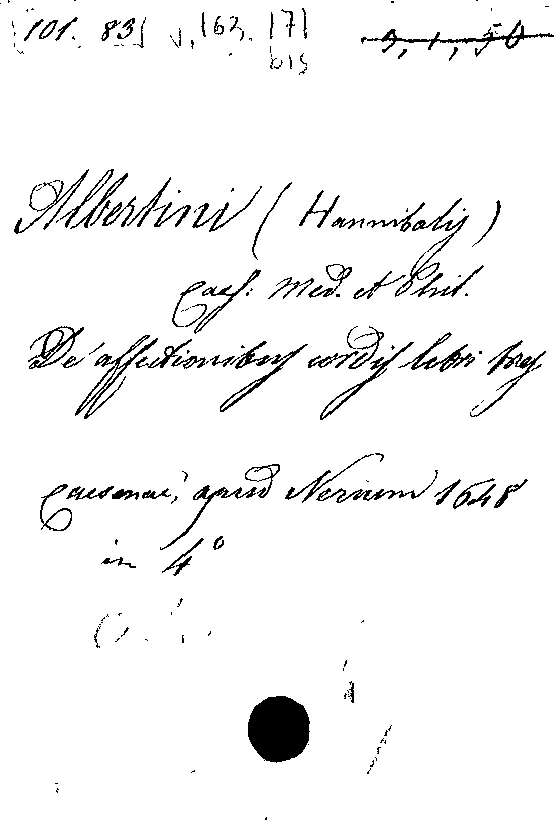 101. 83 v, 163. 171
bis
3, 1, 50
Albertini ( Hannibalis )
Caes: Med. et Phil.
De affectionibus cordis libri tres
Caesenae, apud Nerium 1648
in 4º